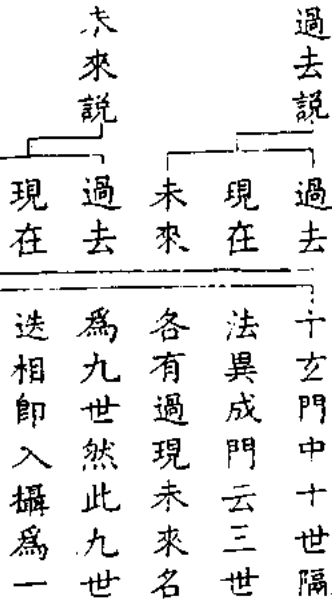 過去説
過去
現在
未來
未來説
過去
現在
十玄門中十世隔
法異成門云三世
各有過現未來名
為九世然此九世
迭相即入攝為一